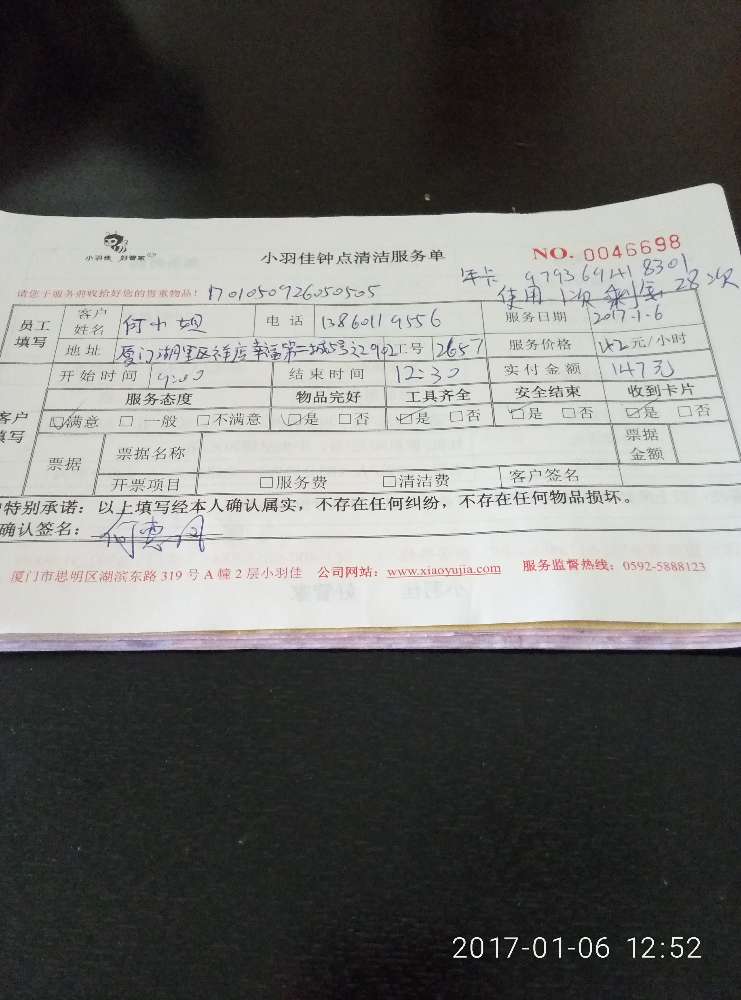 小羽佳 好管家
小羽佳钟点清洁服务单
NO. 0046698
年卡 979369418301
请您于服务前收拾好您的贵重物品! 1701050926050505
使用1次 剩余 28次
员工填写 客户姓名 何小姐 电话 13860119556 服务日期 2017-1-6
地址 厦门湖里区 幸福第二城5号 工号 2657 服务价格 42元/小时
开始时间 9:00 结束时间 12:30 实付金额 147元
客户填写 服务态度 物品完好 工具齐全 安全结束 收到卡片
☑满意 □一般 □不满意 ☑是 □否 ☑是 □否 ☑是 □否 ☑是 □否
票据 票据名称 票据金额
开票项目 □服务费 □清洁费 客户签名
特别承诺：以上填写经本人确认属实，不存在任何纠纷，不存在任何物品损坏。
确认签名：何惠月
厦门市思明区湖滨东路 319 号 A 幢 2 层小羽佳 公司网站：www.xiaoyujia.com 服务监督热线：0592-5888123
2017-01-06 12:52